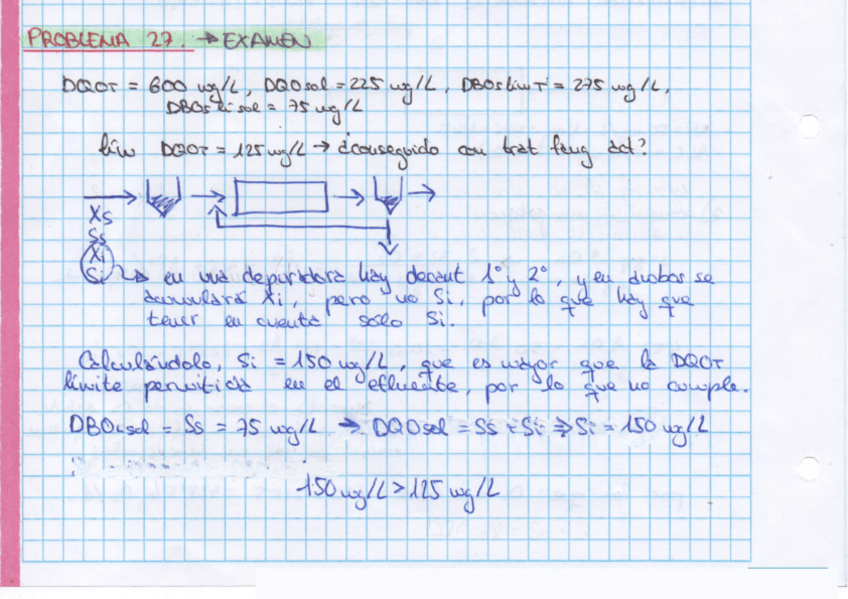 PROBLEMA 27. → EXAMEN
DQOT = 600 mg/L, DQOsol = 225 mg/L, DBOslimT = 275 mg/L,
DBOslisol = 75 mg/L
lim DQOT = 125 mg/L → ¿conseguido con trat fang act?
Xs
Ss
Xi
Si
→ en una depuradora hay decant 1º y 2º, y en ambos se
acumulará Xi, pero no Si, por lo que hay que
tener en cuenta sólo Si.
Calculándolo, Si = 150 mg/L, que es mayor que la DQOT
límite permitida en el efluente, por lo que no cumple.
DBOLsol = Ss = 75 mg/L → DQOsol = Ss + Si ⇒ Si = 150 mg/L
150 mg/L > 125 mg/L